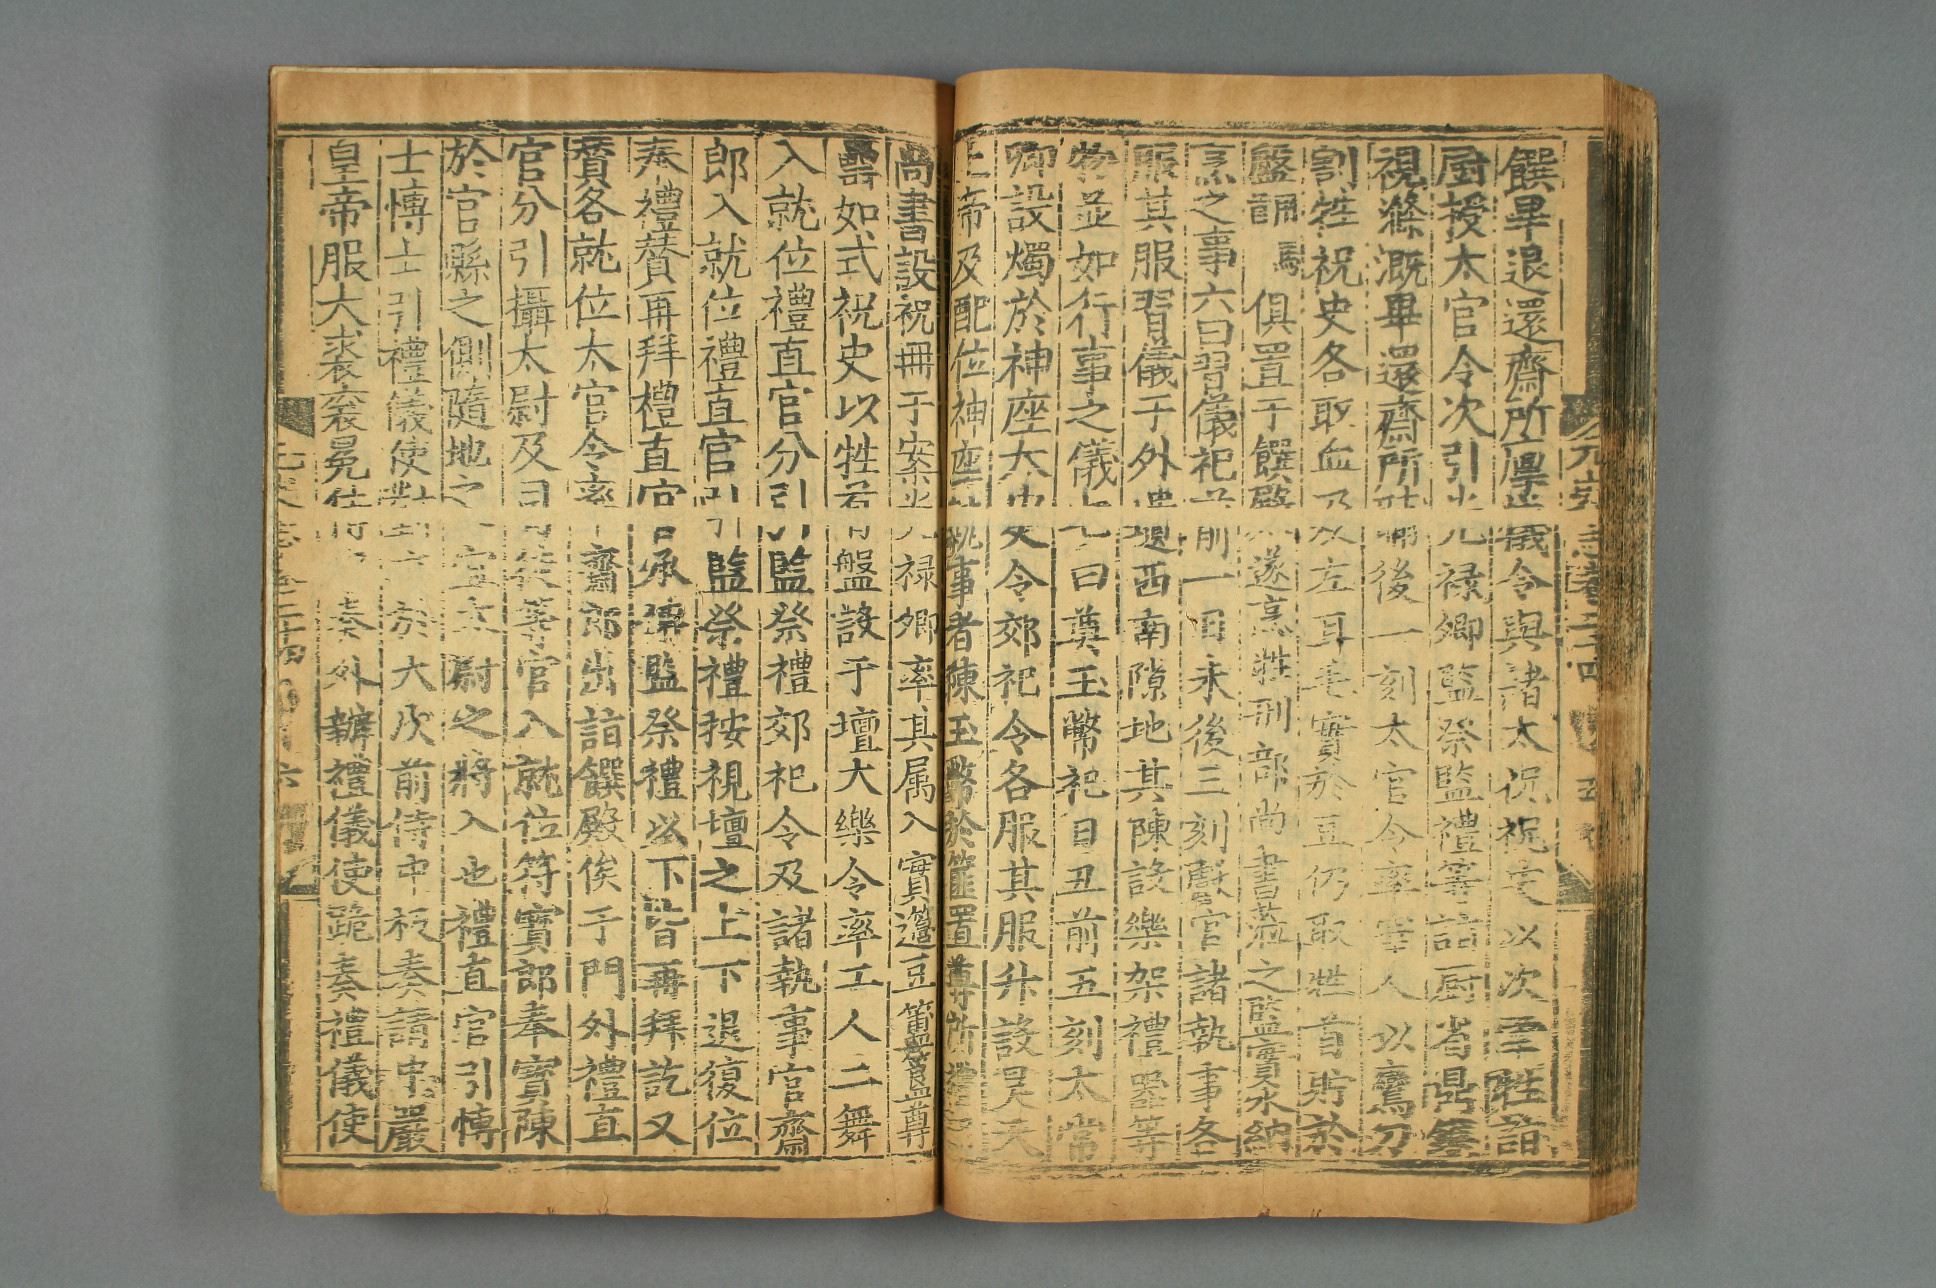 饌畢退還齋所廩犧令與諸太祝祝史以次牽牲詣
厨授太官令次引光禄卿監祭監禮等詣厨省鼎鑊
視滌溉畢還齋所晡後一刻太官令率宰人以鸞刀
割牲祝史各取血及左耳毛實於豆仍取牲首貯於
盤用馬俱置于饌殿遂烹牲刑部尚書蒞之監實水納
烹之事六曰習儀祀前一日未後三刻獻官諸執事各
服其服習儀于外壝西南隙地其陳設樂架禮器等
物並如行事之儀七曰奠玉幣祀日丑前五刻太常
卿設燭於神座太史令郊祀令各服其服升設昊天
上帝及配位神座執事者陳玉幣於篚置尊所禮部
尚書設祝冊于案光禄卿率其属入實籩豆簠簋尊
罍如式祝史以牲首盤設于壇大樂令率工人二舞
入就位禮直官分引監祭禮郊祀令及諸執事官齋
郎入就位禮直官引監祭禮按視壇之上下退復位
奉禮賛再拜禮直官承傳監祭禮以下皆再拜訖又
賛各就位太官令率齋郎出詣饌殿俟于門外禮直
官分引攝太尉及司徒等官入就位符寳郎奉寳陳
於宫縣之側隨地之宜太尉之將入也禮直官引博
士博士引禮儀使對立於大次前侍中板奏請中嚴
皇帝服大裘衮冕侍中奏外辦禮儀使跪奏禮儀使
元史志卷二十四
五
元史志卷二十四
六